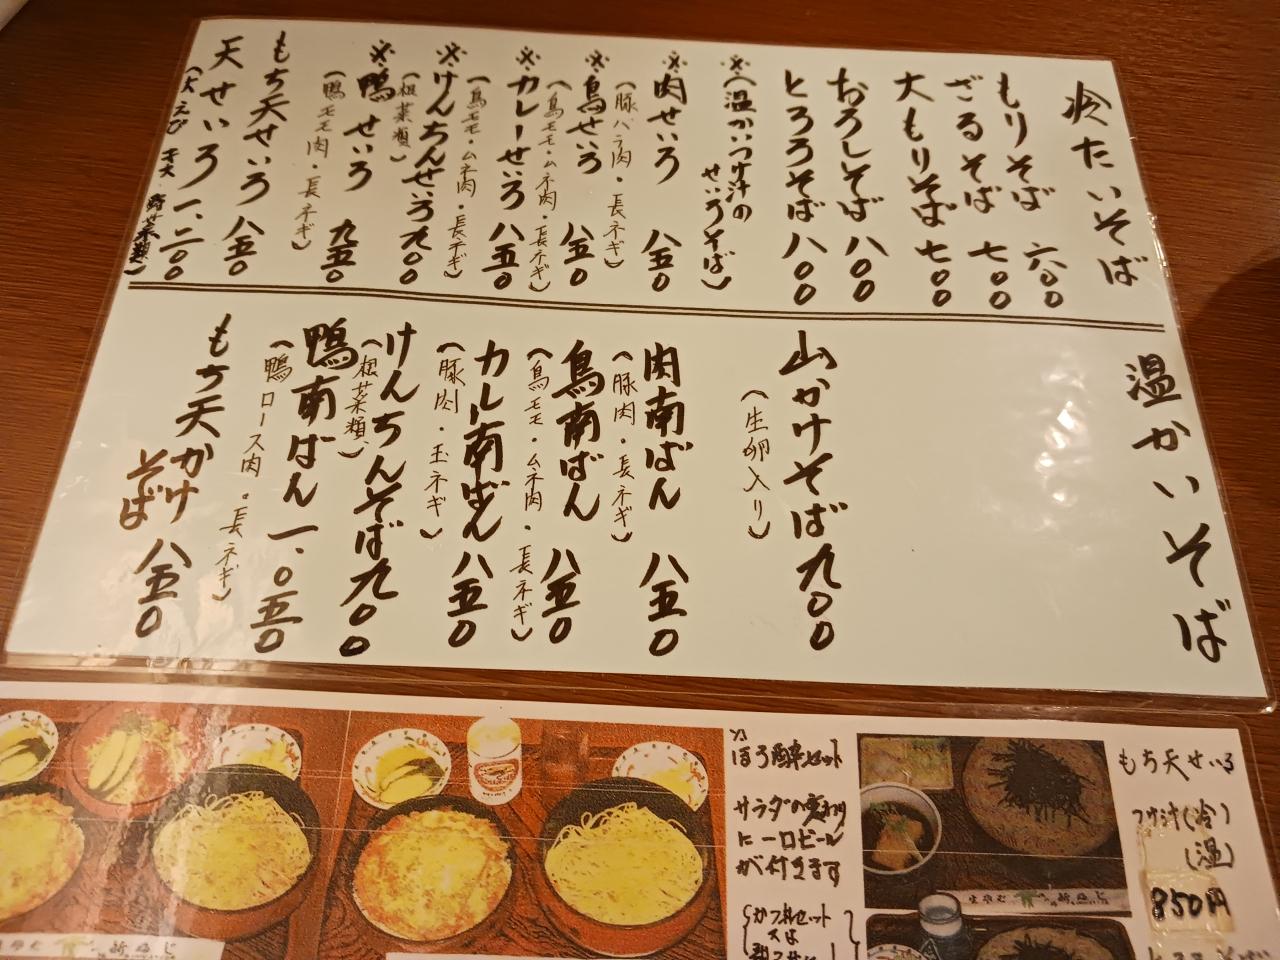 冷たいそば
もりそば 六〇〇
ざるそば 七〇〇
大もりそば 七〇〇
おろしそば 八〇〇
とろろそば 八〇〇
※(温かいつけ汁の
せいろそば)
※肉せいろ 八五〇
(豚バラ肉・長ネギ)
※鳥せいろ 八五〇
(鳥モモ・ムネ肉・長ネギ)
※カレーせいろ 八五〇
(鳥モモ・ムネ肉・長ネギ)
※けんちんせいろ 九〇〇
(根菜類)
※鴨せいろ 九五〇
(鴨モモ肉・長ネギ)
もち天せいろ 八五〇
天せいろ 一、二〇〇
(大えび 野菜類)
温かいそば
山かけそば 九〇〇
(生卵入り)
肉南ばん 八五〇
(豚肉・長ネギ)
鳥南ばん 八五〇
(鳥モモ・ムネ肉・長ネギ)
カレー南ばん 八五〇
(豚肉・玉ネギ)
けんちんそば 九〇〇
(根菜類)
鴨南ばん 一、〇五〇
(鴨ロース肉・長ネギ)
もち天かけ
そば 八五〇
ほろ酔セット
サラダの変わり
に一口ビール
が付きます
もち天せいろ
つけ汁(冷)
(温)
850円